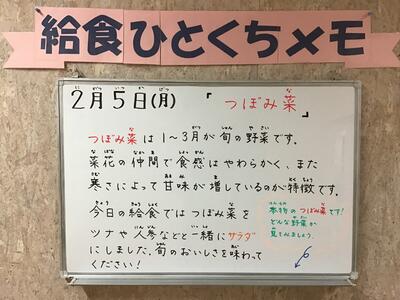 給食ひとくちメモ
2月5日(月) 「つぼみ菜
つぼみ菜は1〜3月が旬の野菜です。
菜花の仲間で食感はやわらかく、また
寒さによって甘味が増しているのが特徴です。
今日の給食ではつぼみ菜を
ツナや人参などと一緒にサラダ
にしました。旬のおいしさを味わって
ください!
本物のつぼみ菜です!
どんな野菜か
見てみましょう。